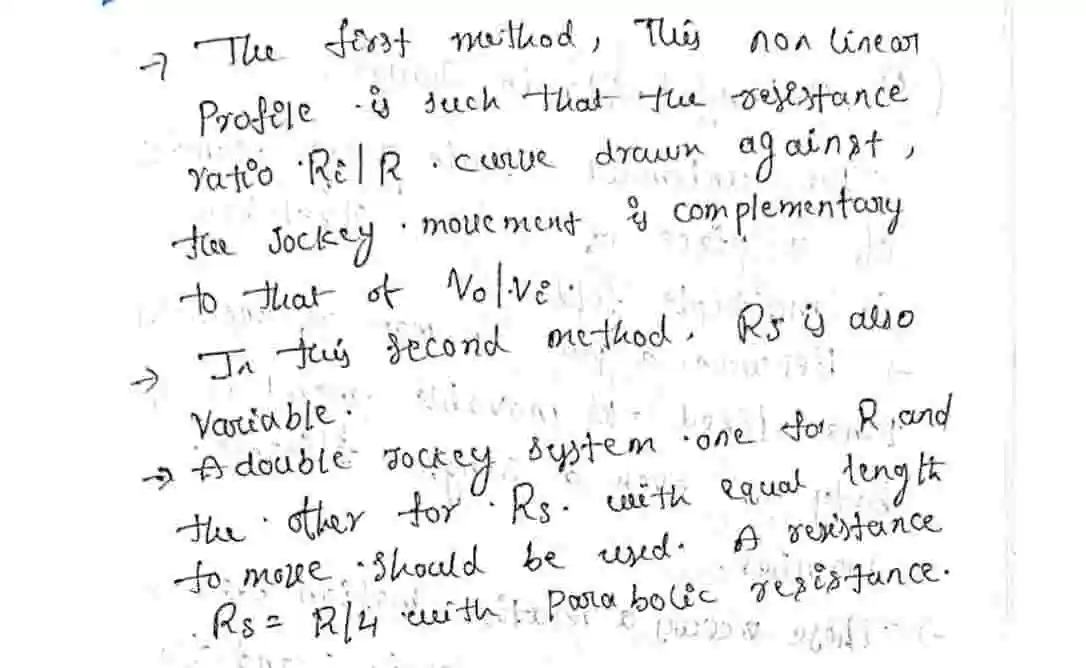 → The first method, This non linear
Profile is such that the resistance
ratio Ri/R curve drawn against,
the Jockey movement is complementary
to that of Vo/Vi.
→ In this second method, Rs is also
variable.
→ A double Jockey system one for R, and
the other for Rs. with equal length
to move should be used. A resistance
Rs = R/4 with parabolic resistance.